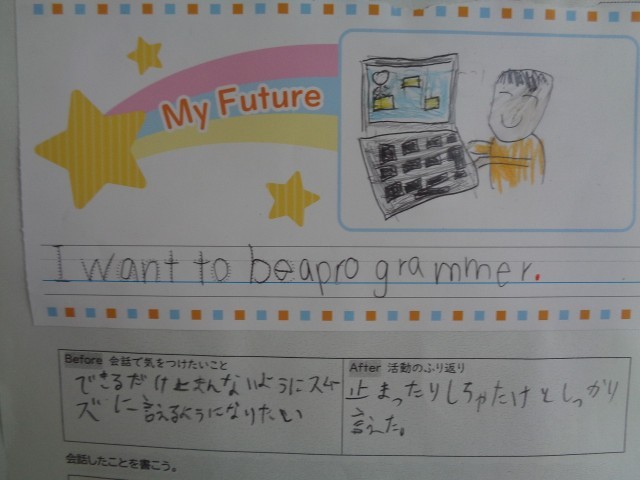 My Future
I want to beapro grammer.
Before 会話で気をつけたいこと
できるだけ止まんないようにスムー
ズに言えるようになりたい
After 活動のふり返り
止まったりしちゃたけどしっかり
言えた。
会話したことを書こう。